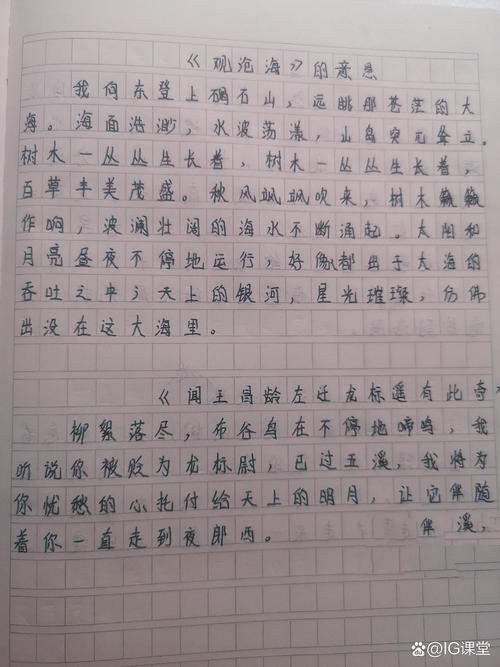 《观沧海》的意思
我向东登上碣石山，远眺那苍茫的大
海。海面浩渺，水波荡漾，山岛突兀耸立。
树木一丛丛生长着，树木一丛丛生长着，
百草丰美茂盛。秋风飒飒吹来，树木簌簌
作响，波澜壮阔的海水不断涌起。太阳和
月亮昼夜不停地运行，好像都出于大海的
吞吐之中；天上的银河，星光璀璨，仿佛
出没在这大海里。
《闻王昌龄左迁龙标遥有此寄》
柳絮落尽，布谷鸟在不停地啼鸣，我
听说你被贬为龙标尉，已过五溪，我将为
你忧愁的心托付给天上的明月，让它伴随
着你一直走到夜郎西。 伴 溪，
@IG课堂